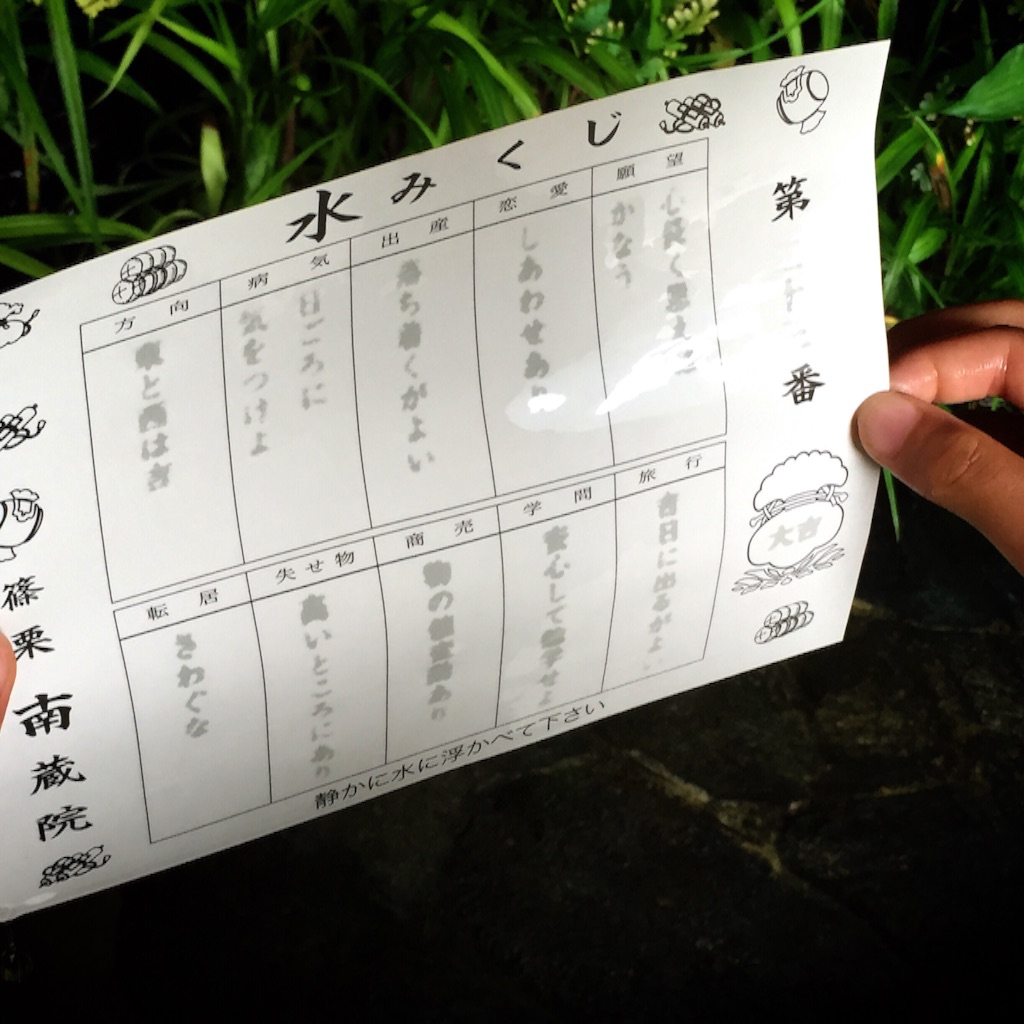 水みくじ
第
番
大吉
願望
心長く思えば
かなう
恋愛
しあわせあり
出産
落ち着くがよい
病気
日ごろに
気をつけよ
方向
東と西は吉
旅行
吉日に出るがよい
学問
安心して勉学せよ
商売
物の値変動あり
失せ物
高いところにあり
転居
さわぐな
静かに水に浮かべて下さい
篠栗
南蔵院